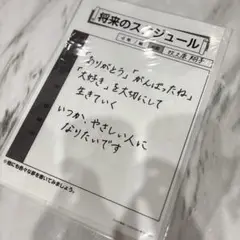 将来のスケジュール
「ありがとう」「がんばったね」
「大好き」を大切にして
生きていく
いつか、やさしい人に
なりたいです